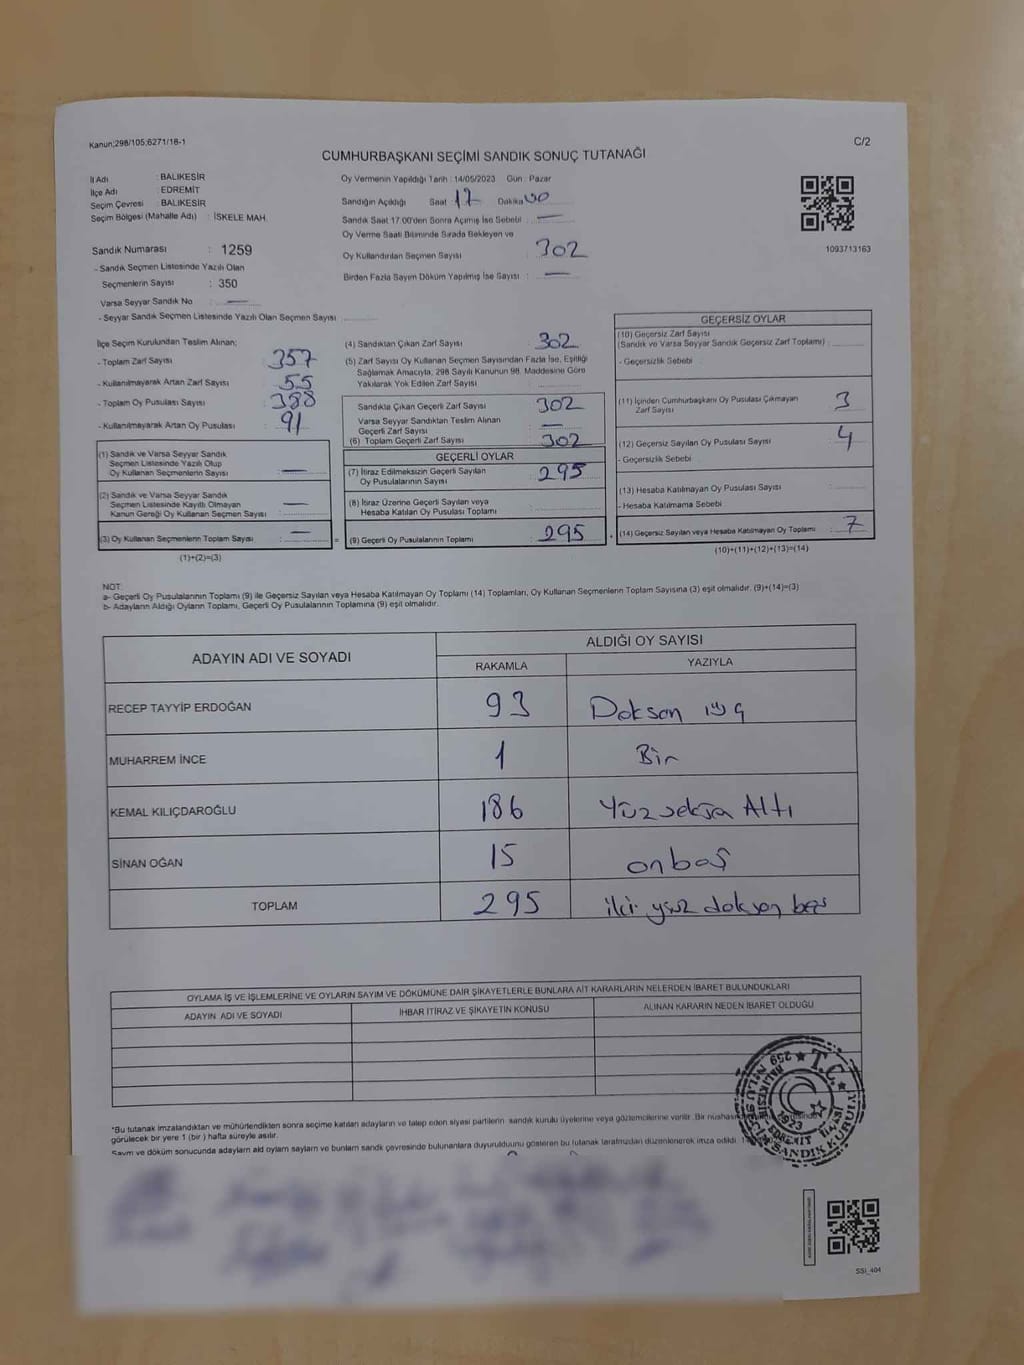 Kanun:298/105;6271/18-1
C/2
CUMHURBAŞKANI SEÇİMİ SANDIK SONUÇ TUTANAĞI
İl Adı : BALIKESİR
İlçe Adı : EDREMİT
Seçim Çevresi : BALIKESİR
Seçim Bölgesi (Mahalle Adı) : İSKELE MAH.
Sandık Numarası : 1259
- Sandık Seçmen Listesinde Yazılı Olan
Seçmenlerin Sayısı : 350
Varsa Seyyar Sandık No : —
- Seyyar Sandık Seçmen Listesinde Yazılı Olan Seçmen Sayısı :
Oy Vermenin Yapıldığı Tarih : 14/05/2023 Gün : Pazar
Sandığın Açıldığı Saat 17 Dakika 00
Sandık Saat 17.00'den Sonra Açılmış İse Sebebi : —
Oy Verme Saati Bitiminde Sırada Bekleyen ve
Oy Kullandırılan Seçmen Sayısı : 302
Birden Fazla Sayım Döküm Yapılmış İse Sayısı : —
1093713163
İlçe Seçim Kurulundan Teslim Alınan;
- Toplam Zarf Sayısı : 357
- Kullanılmayarak Artan Zarf Sayısı : 55
- Toplam Oy Pusulası Sayısı : 388
- Kullanılmayarak Artan Oy Pusulası : 91
(1) Sandık ve Varsa Seyyar Sandık
Seçmen Listesinde Yazılı Olup
Oy Kullanan Seçmenlerin Sayısı : —
(2) Sandık ve Varsa Seyyar Sandık
Seçmen Listesinde Kayıtlı Olmayan
Kanun Gereği Oy Kullanan Seçmen Sayısı : —
(3) Oy Kullanan Seçmenlerin Toplam Sayısı : —
(1)+(2)=(3)
(4) Sandıktan Çıkan Zarf Sayısı : 302
(5) Zarf Sayısı Oy Kullanan Seçmen Sayısından Fazla İse, Eşitliği
Sağlamak Amacıyla, 298 Sayılı Kanunun 98. Maddesine Göre
Yakılarak Yok Edilen Zarf Sayısı :
Sandıkta Çıkan Geçerli Zarf Sayısı : 302
Varsa Seyyar Sandıktan Teslim Alınan
Geçerli Zarf Sayısı : —
(6) Toplam Geçerli Zarf Sayısı : 302
GEÇERLİ OYLAR
(7) İtiraz Edilmeksizin Geçerli Sayılan
Oy Pusulalarının Sayısı : 295
(8) İtiraz Üzerine Geçerli Sayılan veya
Hesaba Katılan Oy Pusulası Toplamı :
= (9) Geçerli Oy Pusulalarının Toplamı : 295 +
GEÇERSİZ OYLAR
(10) Geçersiz Zarf Sayısı
(Sandık ve Varsa Seyyar Sandık Geçersiz Zarf Toplamı) :
- Geçersizlik Sebebi :
(11) İçinden Cumhurbaşkanı Oy Pusulası Çıkmayan
Zarf Sayısı : 3
(12) Geçersiz Sayılan Oy Pusulası Sayısı : 4
- Geçersizlik Sebebi :
(13) Hesaba Katılmayan Oy Pusulası Sayısı :
- Hesaba Katılmama Sebebi :
(14) Geçersiz Sayılan veya Hesaba Katılmayan Oy Toplamı : 7
(10)+(11)+(12)+(13)=(14)
NOT:
a- Geçerli Oy Pusulalarının Toplamı (9) ile Geçersiz Sayılan veya Hesaba Katılmayan Oy Toplamı (14) Toplamları, Oy Kullanan Seçmenlerin Toplam Sayısına (3) eşit olmalıdır. (9)+(14)=(3)
b- Adayların Aldığı Oyların Toplamı, Geçerli Oy Pusulalarının Toplamına (9) eşit olmalıdır.
ADAYIN ADI VE SOYADI
ALDIĞI OY SAYISI
RAKAMLA YAZIYLA
RECEP TAYYİP ERDOĞAN 93 Doksan üç
MUHARREM İNCE 1 Bir
KEMAL KILIÇDAROĞLU 186 Yüzseksen Altı
SİNAN OĞAN 15 onbeş
TOPLAM 295 iki yüz doksan beş
OYLAMA İŞ VE İŞLEMLERİNE VE OYLARIN SAYIM VE DÖKÜMÜNE DAİR ŞİKAYETLERLE BUNLARA AİT KARARLARIN NELERDEN İBARET BULUNDUKLARI
ADAYIN ADI VE SOYADI İHBAR İTİRAZ VE ŞİKAYETİN KONUSU ALINAN KARARIN NEDEN İBARET OLDUĞU
*Bu tutanak imzalandıktan ve mühürlendikten sonra seçime katılan adayların ve talep eden siyasi partilerin sandık kurulu üyelerine veya gözlemcilerine verilir. Bir nüshası
görülecek bir yere 1 (bir) hafta süreyle asılır.
Sayım ve döküm sonucunda adayların ad oylam sayların ve bunlam sandık çevresinde bulunanlara duyurulduunu gösteren bu tutanak tarafımızdan düzenlenerek imza edildi.
T.C. BALIKESİR EDREMİT İLÇESİ SANDIK KURULU
SSI_404